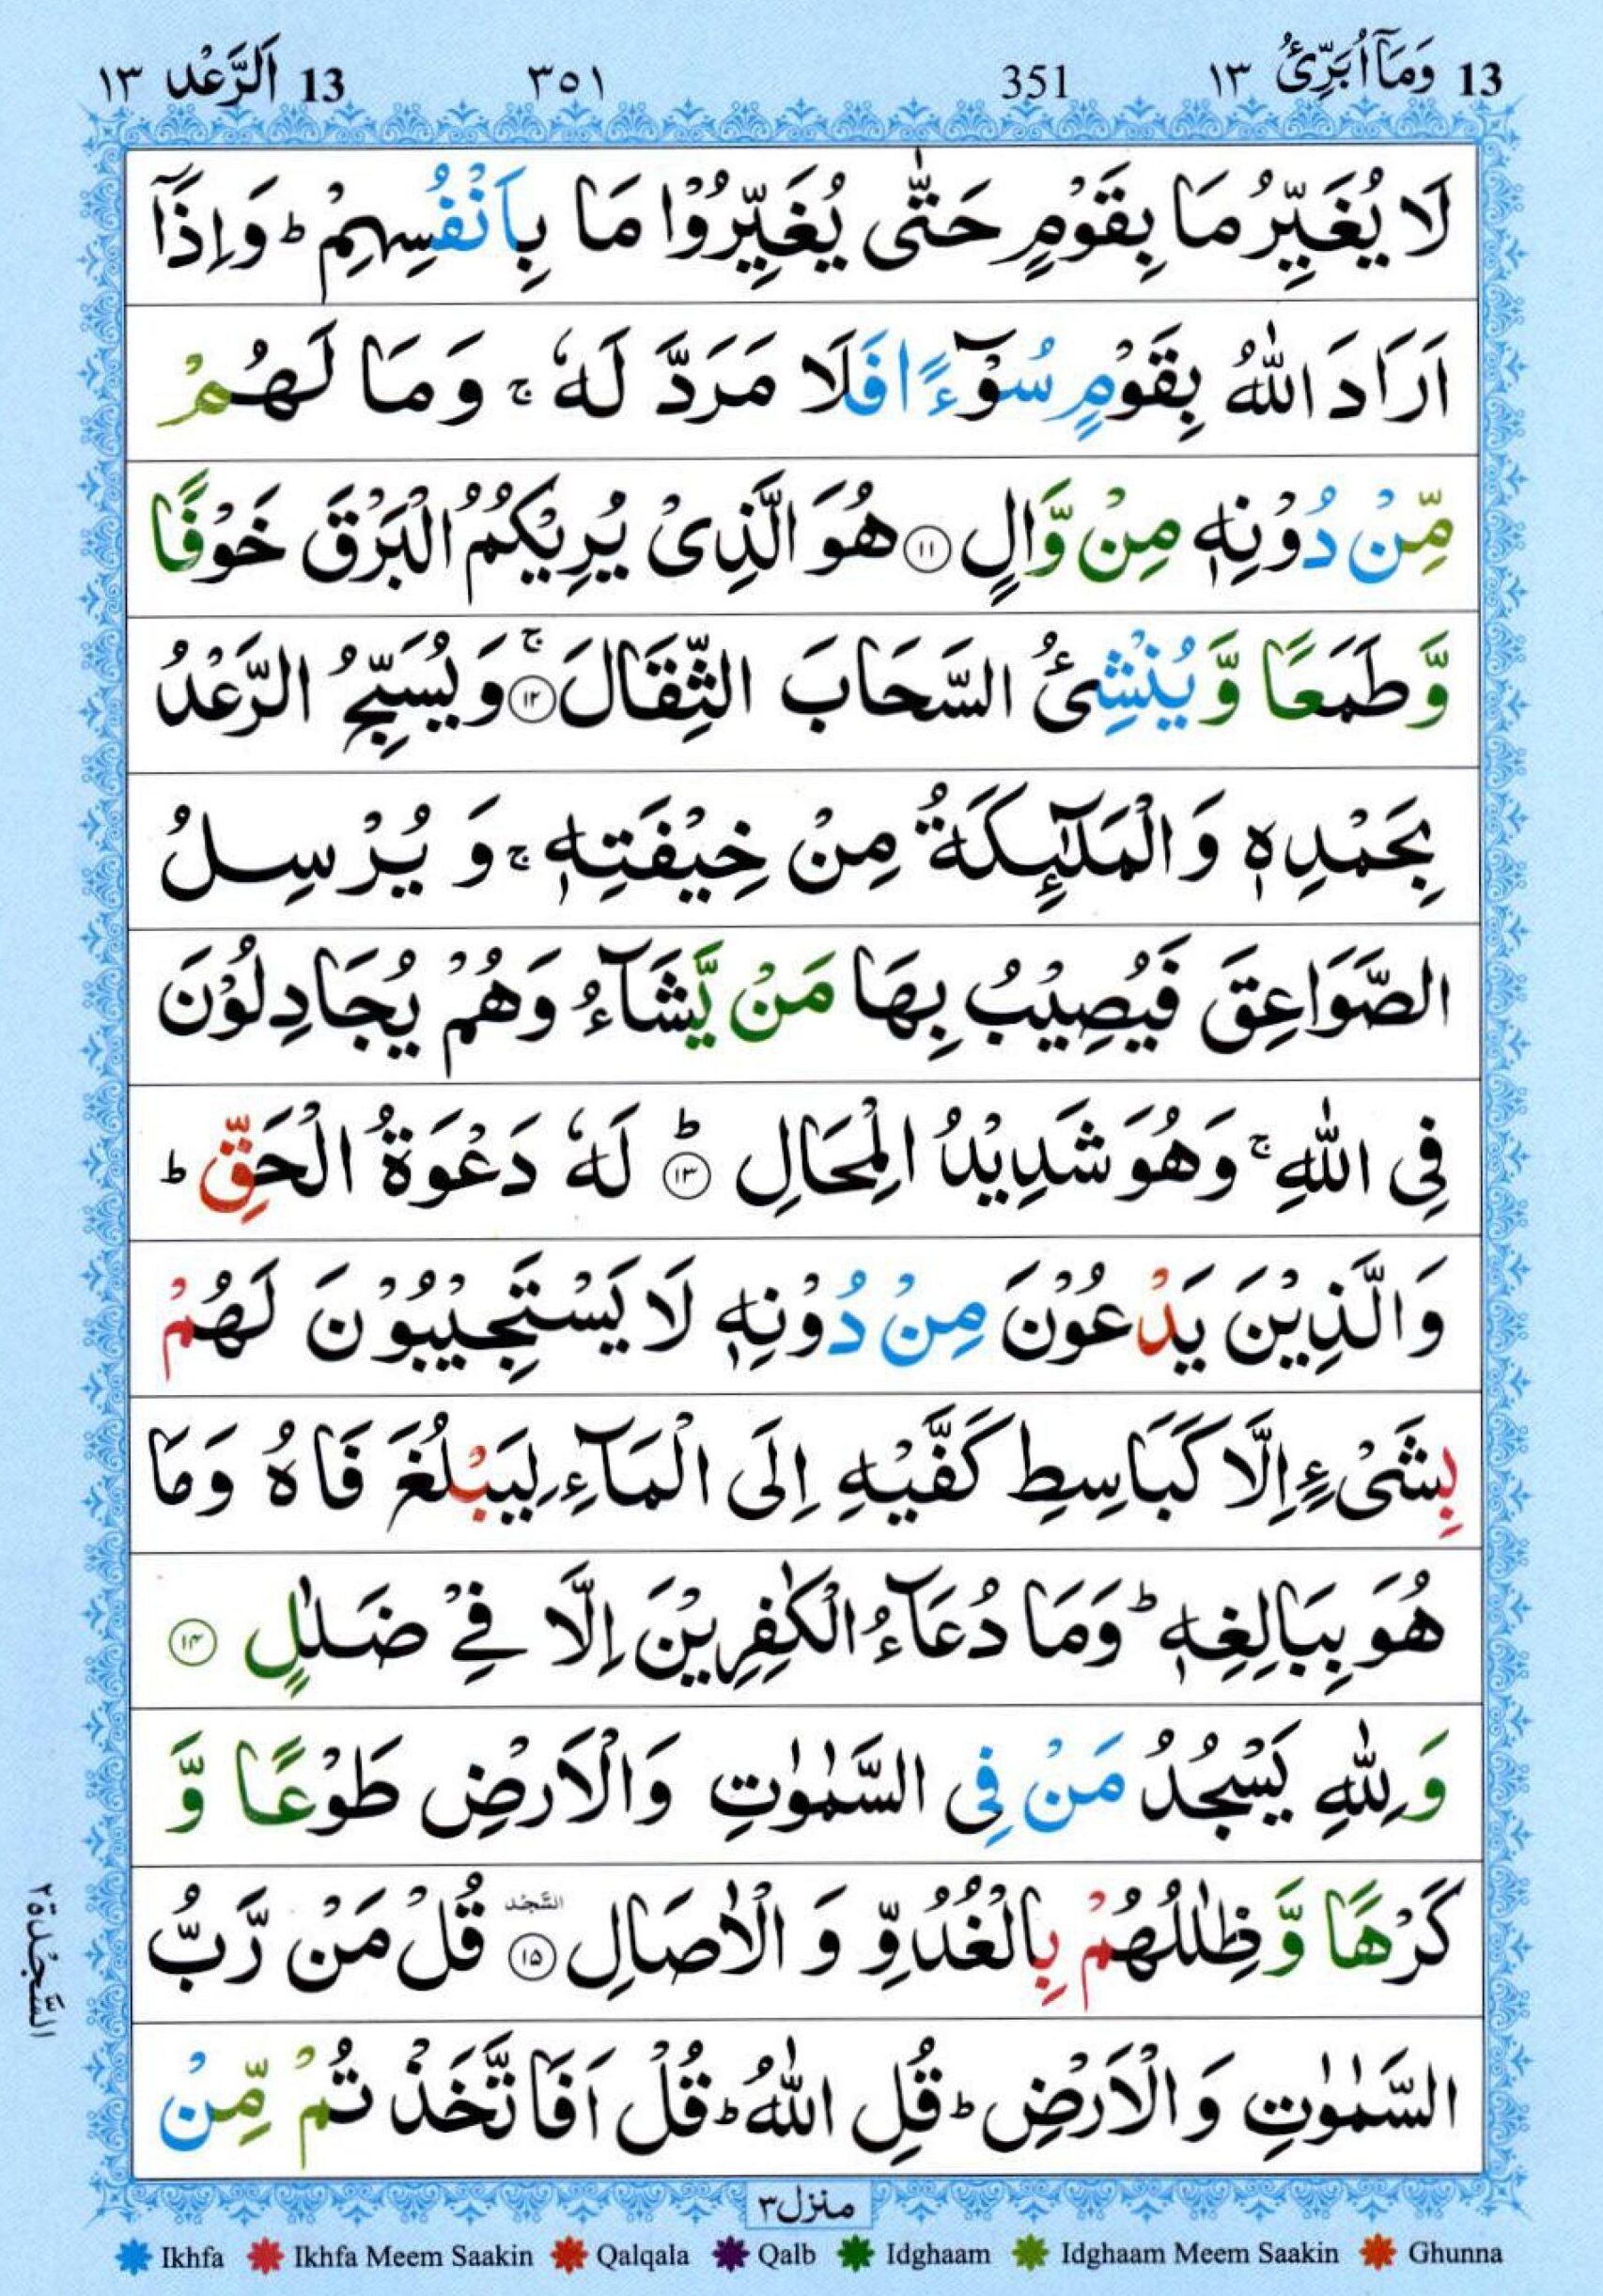 13 وَمَآ اُبَرِّئُ ١٣ 351 ٣٥١ 13 اَلرَّعْد ١٣
لَا يُغَيِّرُ مَا بِقَوْمٍ حَتّٰى يُغَيِّرُوْا مَا بِاَنْفُسِهِمْ ؕ وَاِذَاۤ
اَرَادَ اللّٰهُ بِقَوْمٍ سُوْٓءًا فَلَا مَرَدَّ لَهٗ ۚ وَمَا لَهُمْ
مِّنْ دُوْنِهٖ مِنْ وَّالٍ ۝۱۱ هُوَ الَّذِىْ يُرِيْكُمُ الْبَرْقَ خَوْفًا
وَّطَمَعًا وَّيُنْشِئُ السَّحَابَ الثِّقَالَ ۝۱۲ۚ وَيُسَبِّحُ الرَّعْدُ
بِحَمْدِهٖ وَالْمَلٰٓئِكَةُ مِنْ خِيْفَتِهٖ ۚ وَيُرْسِلُ
الصَّوَاعِقَ فَيُصِيْبُ بِهَا مَنْ يَّشَآءُ وَهُمْ يُجَادِلُوْنَ
فِى اللّٰهِ ۚ وَهُوَ شَدِيْدُ الْمِحَالِ ۝۱۳ؕ لَهٗ دَعْوَةُ الْحَقِّ ؕ
وَالَّذِيْنَ يَدْعُوْنَ مِنْ دُوْنِهٖ لَا يَسْتَجِيْبُوْنَ لَهُمْ
بِشَىْءٍ اِلَّا كَبَاسِطِ كَفَّيْهِ اِلَى الْمَآءِ لِيَبْلُغَ فَاهُ وَمَا
هُوَ بِبَالِغِهٖ ؕ وَمَا دُعَآءُ الْكٰفِرِيْنَ اِلَّا فِىْ ضَلٰلٍ ۝۱۴
وَلِلّٰهِ يَسْجُدُ مَنْ فِى السَّمٰوٰتِ وَالْاَرْضِ طَوْعًا وَّ
كَرْهًا وَّظِلٰلُهُمْ بِالْغُدُوِّ وَالْاٰصَالِ ۝۱۵ السَّجْدة قُلْ مَنْ رَّبُّ
السَّمٰوٰتِ وَالْاَرْضِ ؕ قُلِ اللّٰهُ ؕ قُلْ اَفَاتَّخَذْتُمْ مِّنْ
السَّجْدَة ٢
منزل٣
Ikhfa Ikhfa Meem Saakin Qalqala Qalb Idghaam Idghaam Meem Saakin Ghunna